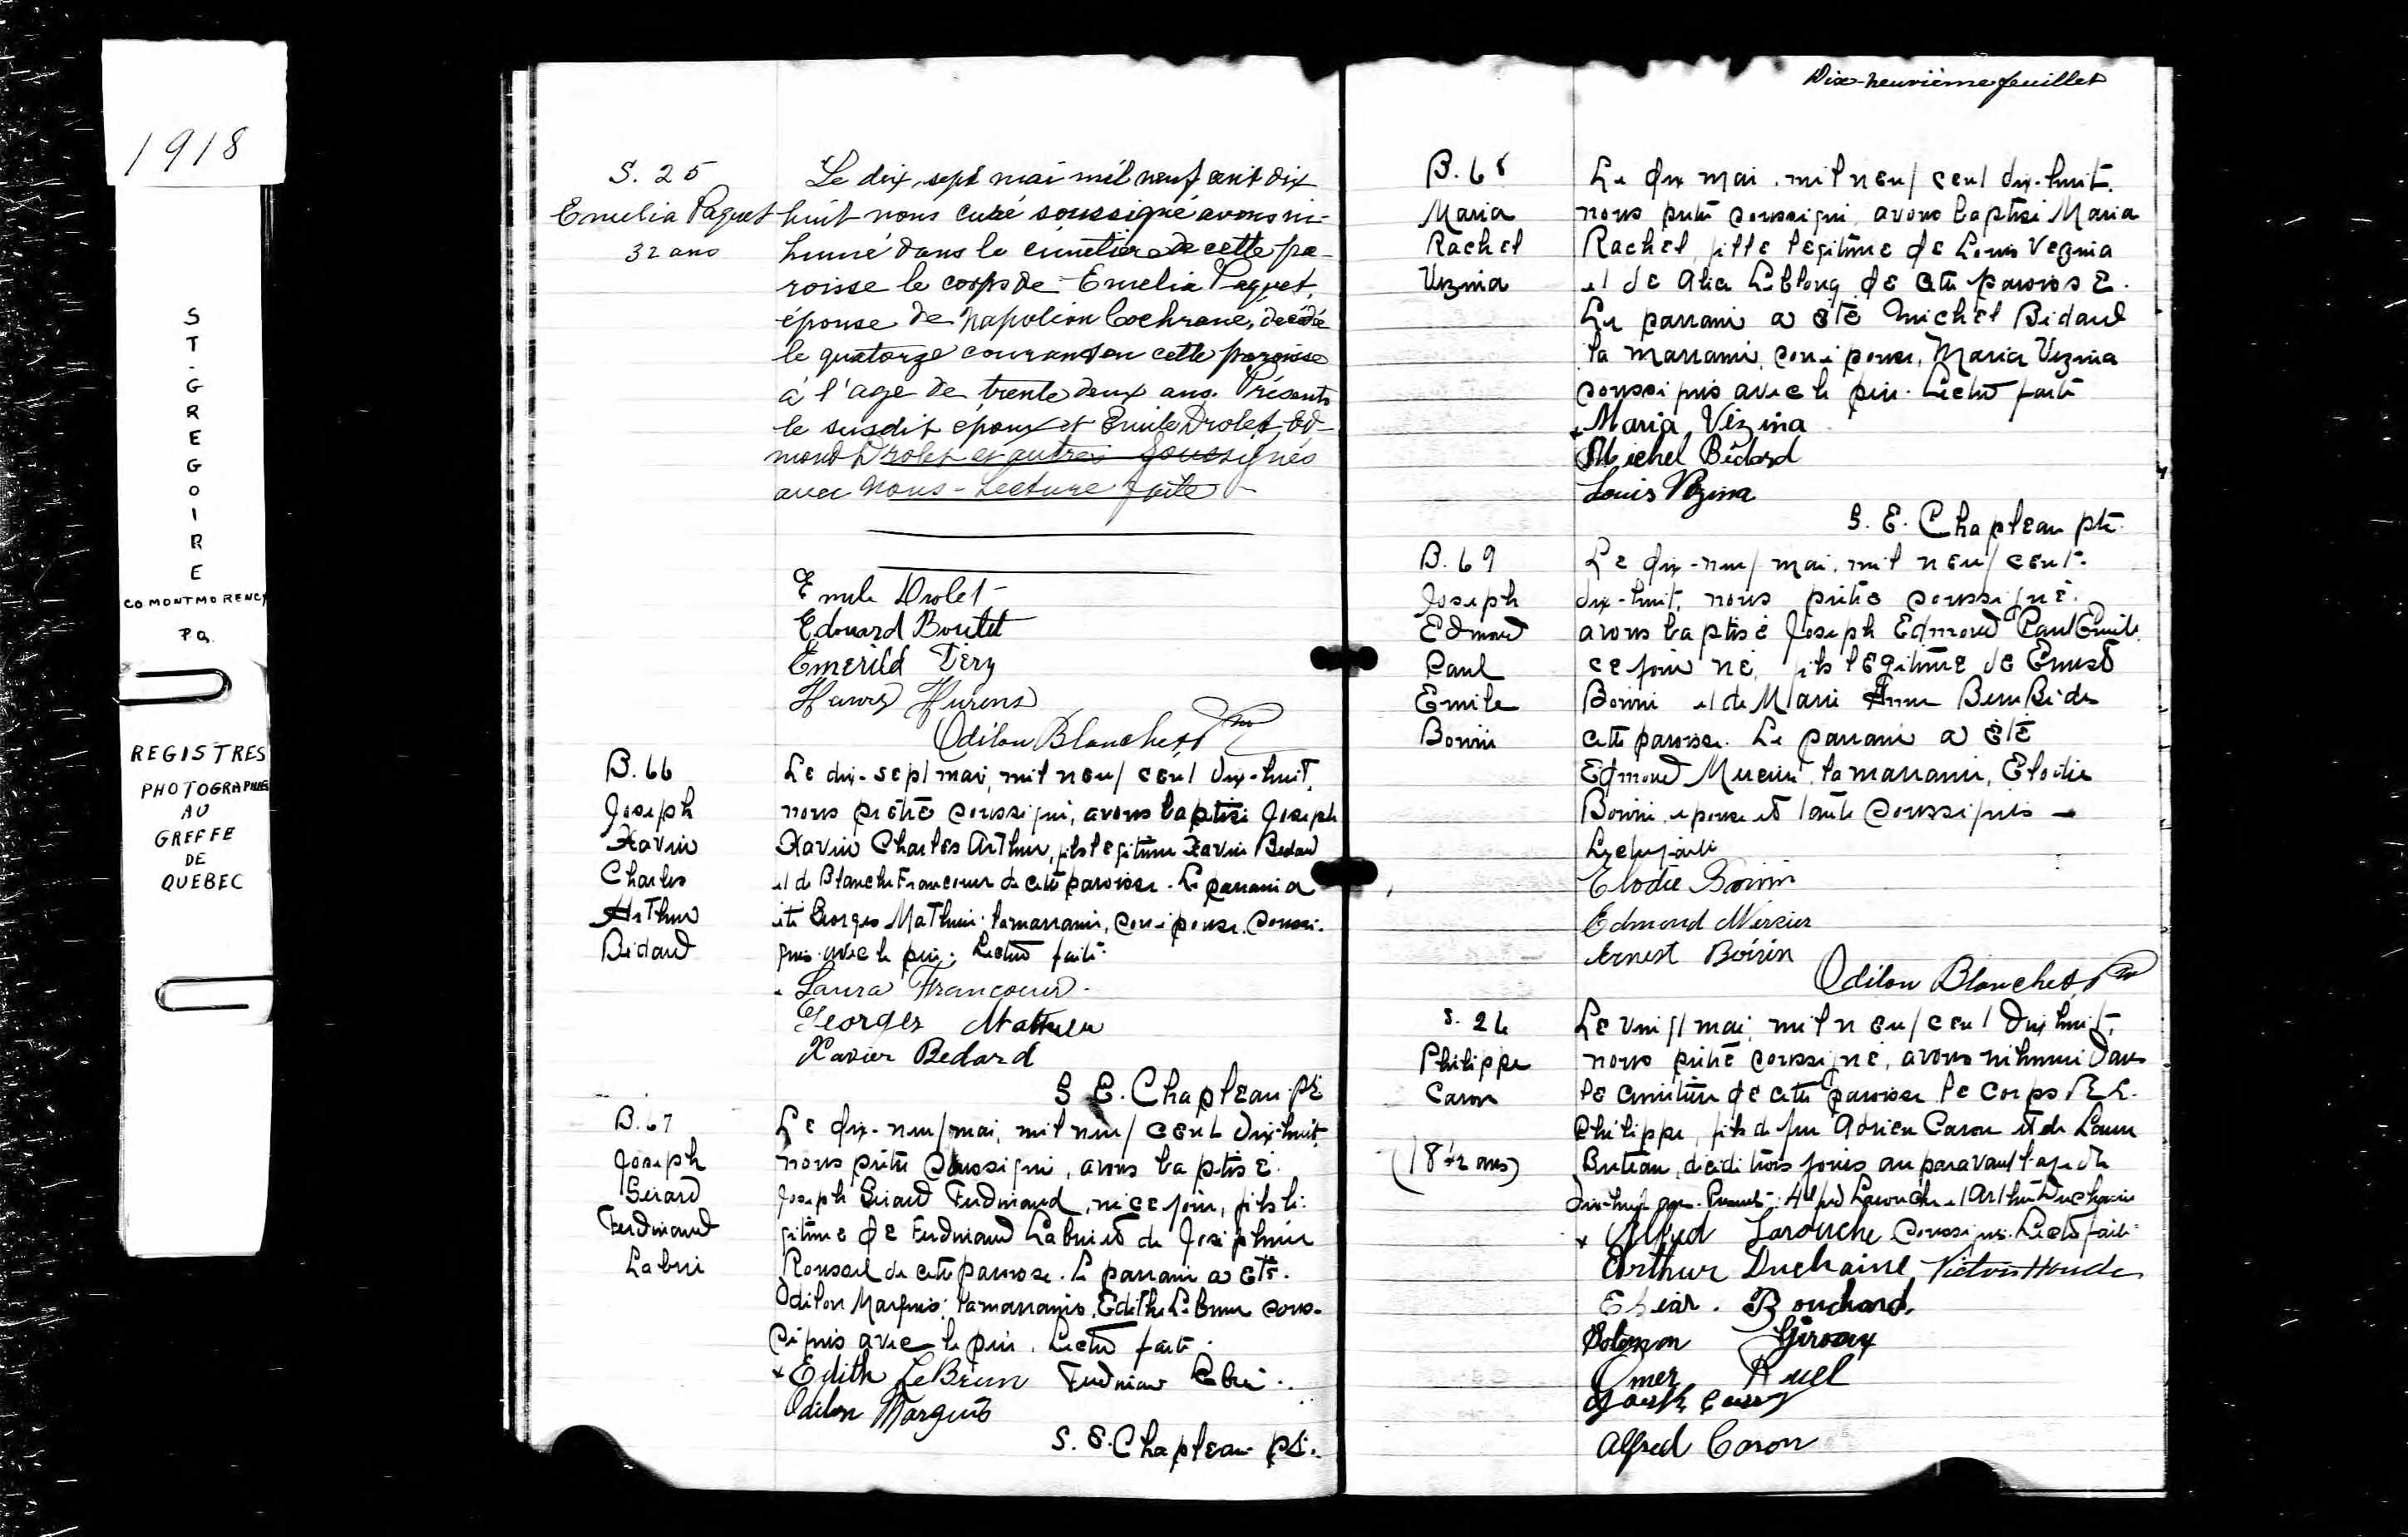 1918
ST-GREGOIRE
CO MONTMORENCY
P.Q.
REGISTRES
PHOTOGRAPHIES
AU
GREFFE
DE
QUEBEC
S. 25
Emelia Paquet
32 ans
Le dix-sept mai mil neuf cent dix
huit nous curé soussigné avons in-
humé dans le cimetière de cette pa-
roisse le corps de Emelia Paquet,
épouse de Napoléon Cochrane, décédée
le quatorze courant en cette paroisse
à l'age de trente deux ans. Présents
le susdit époux et Emile Drolet, Ed-
mond Drolet et autres soussignés
avec nous - Lecture faite -
Emile Drolet -
Edouard Boutet
Emerild Déry
Odilon Blanchet Ptre
B. 66
Joseph
Xavier
Charles
Arthur
Bédard
Le dix-sept mai, mil neuf cent dix-huit,
nous prêtre soussigné, avons baptisé Joseph
Xavier Charles Arthur, fils légitime Xavier Bedard
et de Blanche Francoeur de cette paroisse. Le parrain a
été Georges Mathieu; la marraine, son épouse soussi-
gnés avec le père. Lecture faite.
Laura Francoeur
Georges Mathieu
Xavier Bedard
S. E. Chapleau ptr
B. 67
Joseph
Gérard
Ferdinand
Labrie
Le dix-neuf mai, mil neuf cent dix-huit,
nous prêtre soussigné, avons baptisé
Joseph Gérard Ferdinand, né ce jour, fils lé-
gitime de Ferdinand Labrie et de Joséphine
de cette paroisse. Le parrain a été
Odilon Marquis; la marraine, Edith LeBrun sous-
signés avec le père. Lecture faite.
Edith LeBrun Ferdinand Labrie
Odilon Marquis
S. E. Chapleau ptr.
Dix-neuvième feuillet
B. 68
Maria
Rachel
Vézina
Le dix mai, mil neuf cent dix-huit,
nous prêtre soussigné, avons baptisé Maria
Rachel, fille légitime de Louis Vezina
et de Alice Leblong de cette paroisse.
Le parrain a été Michel Bédard
la marraine, son épouse, Maria Vézina
soussignés avec le père. Lecture faite
Maria Vézina
Michel Bédard
Louis Vézina
S. E. Chapleau ptr.
B. 69
Joseph
Edmond
Paul
Emile
Boivin
Le dix-neuf mai, mil neuf cent
dix-huit, nous prêtre soussigné,
avons baptisé Joseph Edmond Paul Emile
ce jour né, fils légitime de Ernest
Boivin et de Marie Anne de
cette paroisse. Le parrain a été
Edmond Mercier, la marraine, Elodie
Boivin, épouse et tante soussignés -
Lecture faite
Elodie Boivin
Edmond Mercier
Ernest Boivin
Odilon Blanchet Ptre
S. 26
Philippe
Caron
(18 ½ ans)
Le vingt mai, mil neuf cent dix huit,
nous prêtre soussigné, avons inhumé dans
le cimetière de cette paroisse le corps de
Philippe, fils de feu Adrien Caron et de Laure
Buteau, décédé trois jours auparavant l'age de
dix-huit ans. Présents: Alfred Larouche et Arthur Duchaine
Alfred Larouche soussignés. Lecture faite
Arthur Duchaine Victor Houde
Bouchard
Giroux
Omer Ruel
Alfred Caron